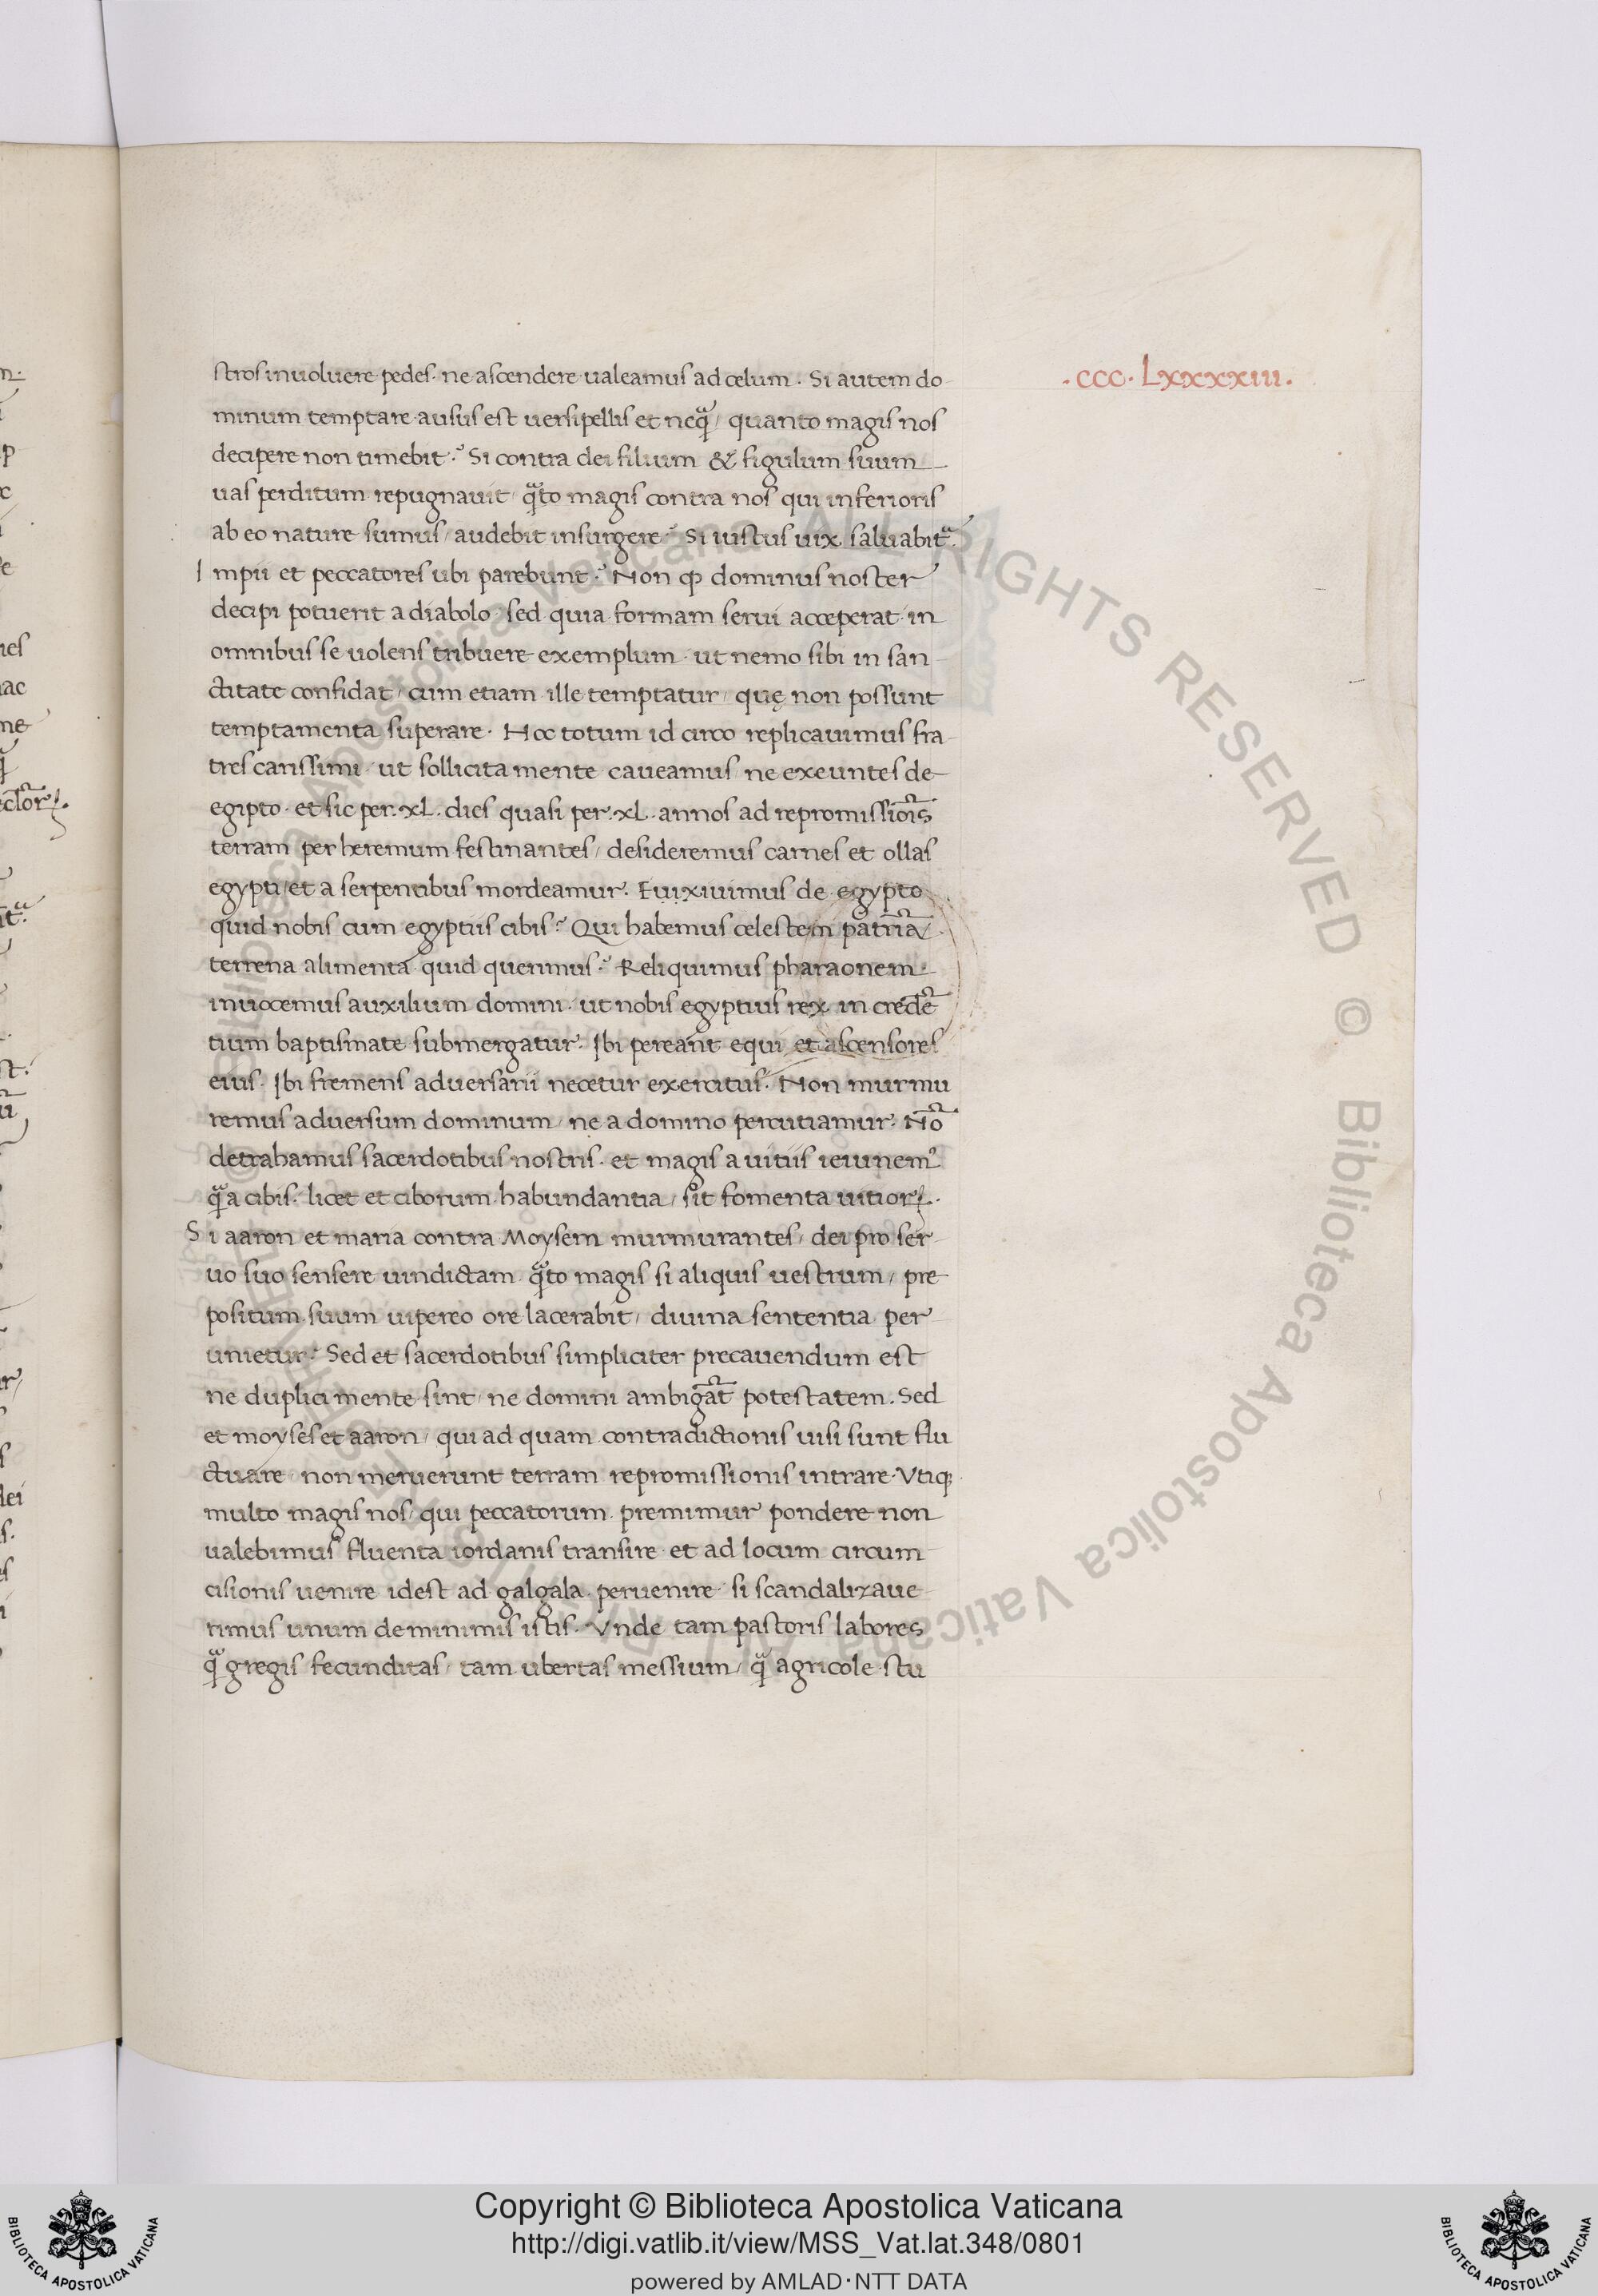 .ccc. Lxxxxiii.
stros inuoluere pedes. ne ascendere ualeamus ad celum. Si autem do-
minum temptare ausus est uersipellis et neqͣ/ quanto magis nos
decipere non timebit? Si contra dei filium & figulum suum
uas perditum repugnauit/ qͣto magis contra nos qui inferioris
ab eo nature sumus/ audebit insurgere? Si iustus uix saluabitᷓ
Impii et peccatores ubi parebunt? Non ꝙ dominus noster
decipi potuerit a diabolo. sed quia formam serui acceperat. in
omnibus se uolens tribuere exemplum. ut nemo sibi in san-
ctitate confidat/ cum etiam ille temptatur/ quę non possunt
temptamenta superare. Hoc totum id circo replicauimus fra-
tres carissimi. ut sollicita mente caueamus ne exeuntes de
egipto. et sic per .xL. dies quasi per .xL. annos ad repromissiōis
terram per heremum festinantes/ desideremus carnes et ollas
egypti/ et a serpentibus mordeamur. Euixiuimus de egypto
quid nobis cum egyptiis cibis? Qui habemus celestem patriā.
terrena alimenta quid querimus? Reliquimus pharaonem.
inuocemus auxilium domini. ut nobis egyptius rex in credē
tium baptismate submergatur. Ibi pereant equi et ascensores
eius. Ibi fremens aduersarii necetur exercitus. Non murmu
remus aduersum dominum/ ne a domino percutiamur. Nō
detrahamus sacerdotibus nostris. et magis a uitiis ieiunemꝰ
qͣ a cibis. licet et ciborum habundantia/ sit fomenta uitioꝝ.
Si aaron et maria contra Moysem murmurantes/ dei pro ser-
uo suo sensere uindictam. qͣto magis si aliquis uestrum/ pre
positum suum uipereo ore lacerabit/ diuina sententia per
unietur? Sed et sacerdotibus simpliciter precauendum est
ne duplici mente sint/ ne domini ambigāt potestatem. Sed
et moyses et aaron/ qui ad quam contradictionis uisi sunt flu
ctuare/ non meruerunt terram repromissionis intrare. Vtiqꝫ
multo magis nos/ qui peccatorum premimur pondere non
ualebimus fluenta iordanis transire et ad locum circum
cisionis uenire idest ad galgala peruenire si scandalizaue-
rimus unum de minimis istis. Vnde tam pastoris labores
qͣ gregis fecunditas/ tam ubertas messium/ qͣ agricole stu
Copyright © Biblioteca Apostolica Vaticana
http://digi.vatlib.it/view/MSS_Vat.lat.348/0801
powered by AMLAD·NTT DATA
BIBLIOTECA APOSTOLICA VATICANA
BIBLIOTECA APOSTOLICA VATICANA